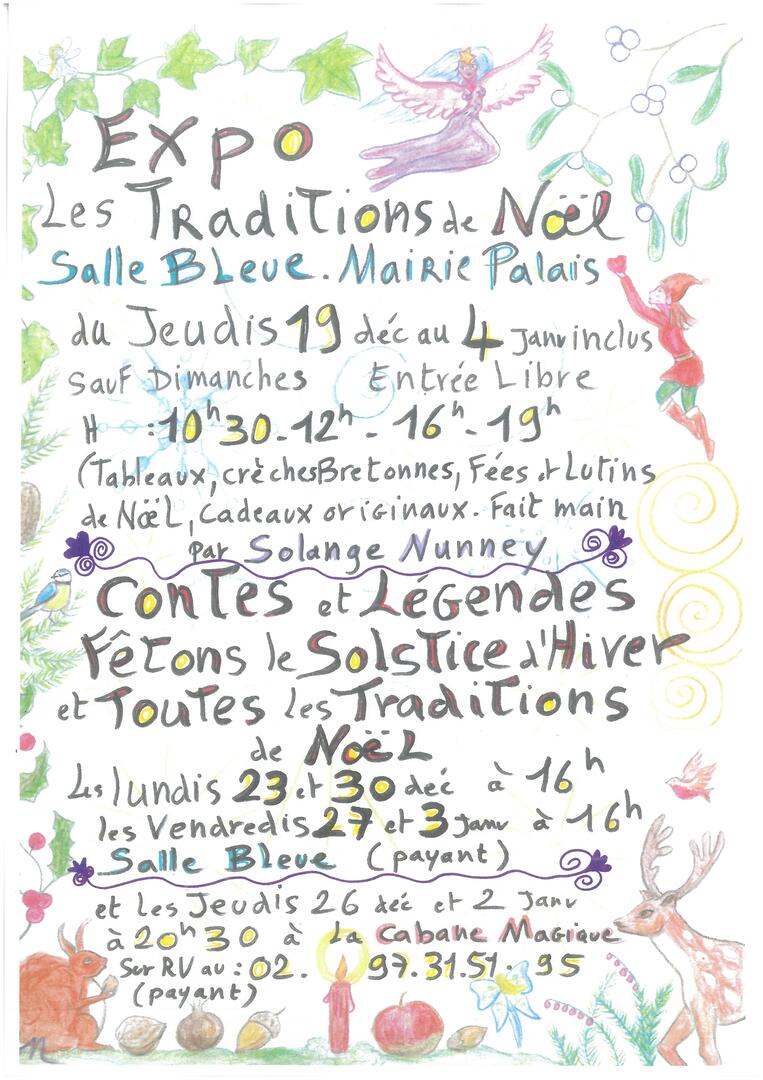 Expo
Les Traditions de Noël
Salle Bleue. Mairie Palais
du Jeudis 19 déc au 4 Janv inclus
Sauf Dimanches Entrée Libre
H : 10h30 - 12h - 16h - 19h
(Tableaux, crèches Bretonnes, Fées et Lutins
de Noël, Cadeaux originaux. Fait main
par Solange Nunney
Contes et Légendes
Fêtons le Solstice d'Hiver
et Toutes les Traditions
de Noël
Les lundis 23 et 30 déc à 16h
les Vendredis 27 et 3 Janv à 16h
Salle Bleue (payant)
et les Jeudis 26 déc et 2 Janv
à 20h30 à la Cabane Magique
Sur RV au : 02. 97.31.51. 95
(payant)